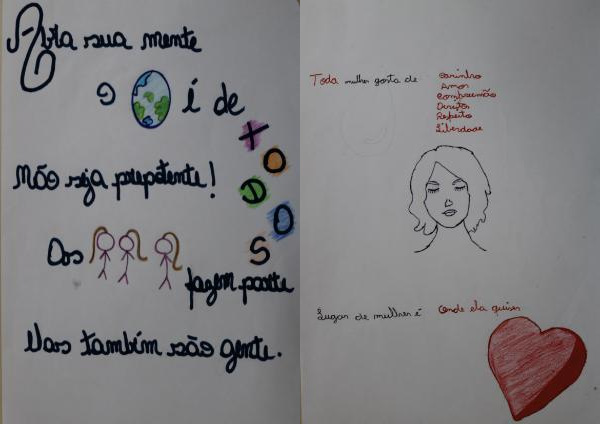 Abra sua mente
O é de
TODOS
Não seja prepotente!
As
fazem parte
Elas também são gente.
Toda mulher gosta de:
Carinho
Amor
Compreensão
Direitos
Respeito
Liberdade
Lugar de mulher é onde ela quiser